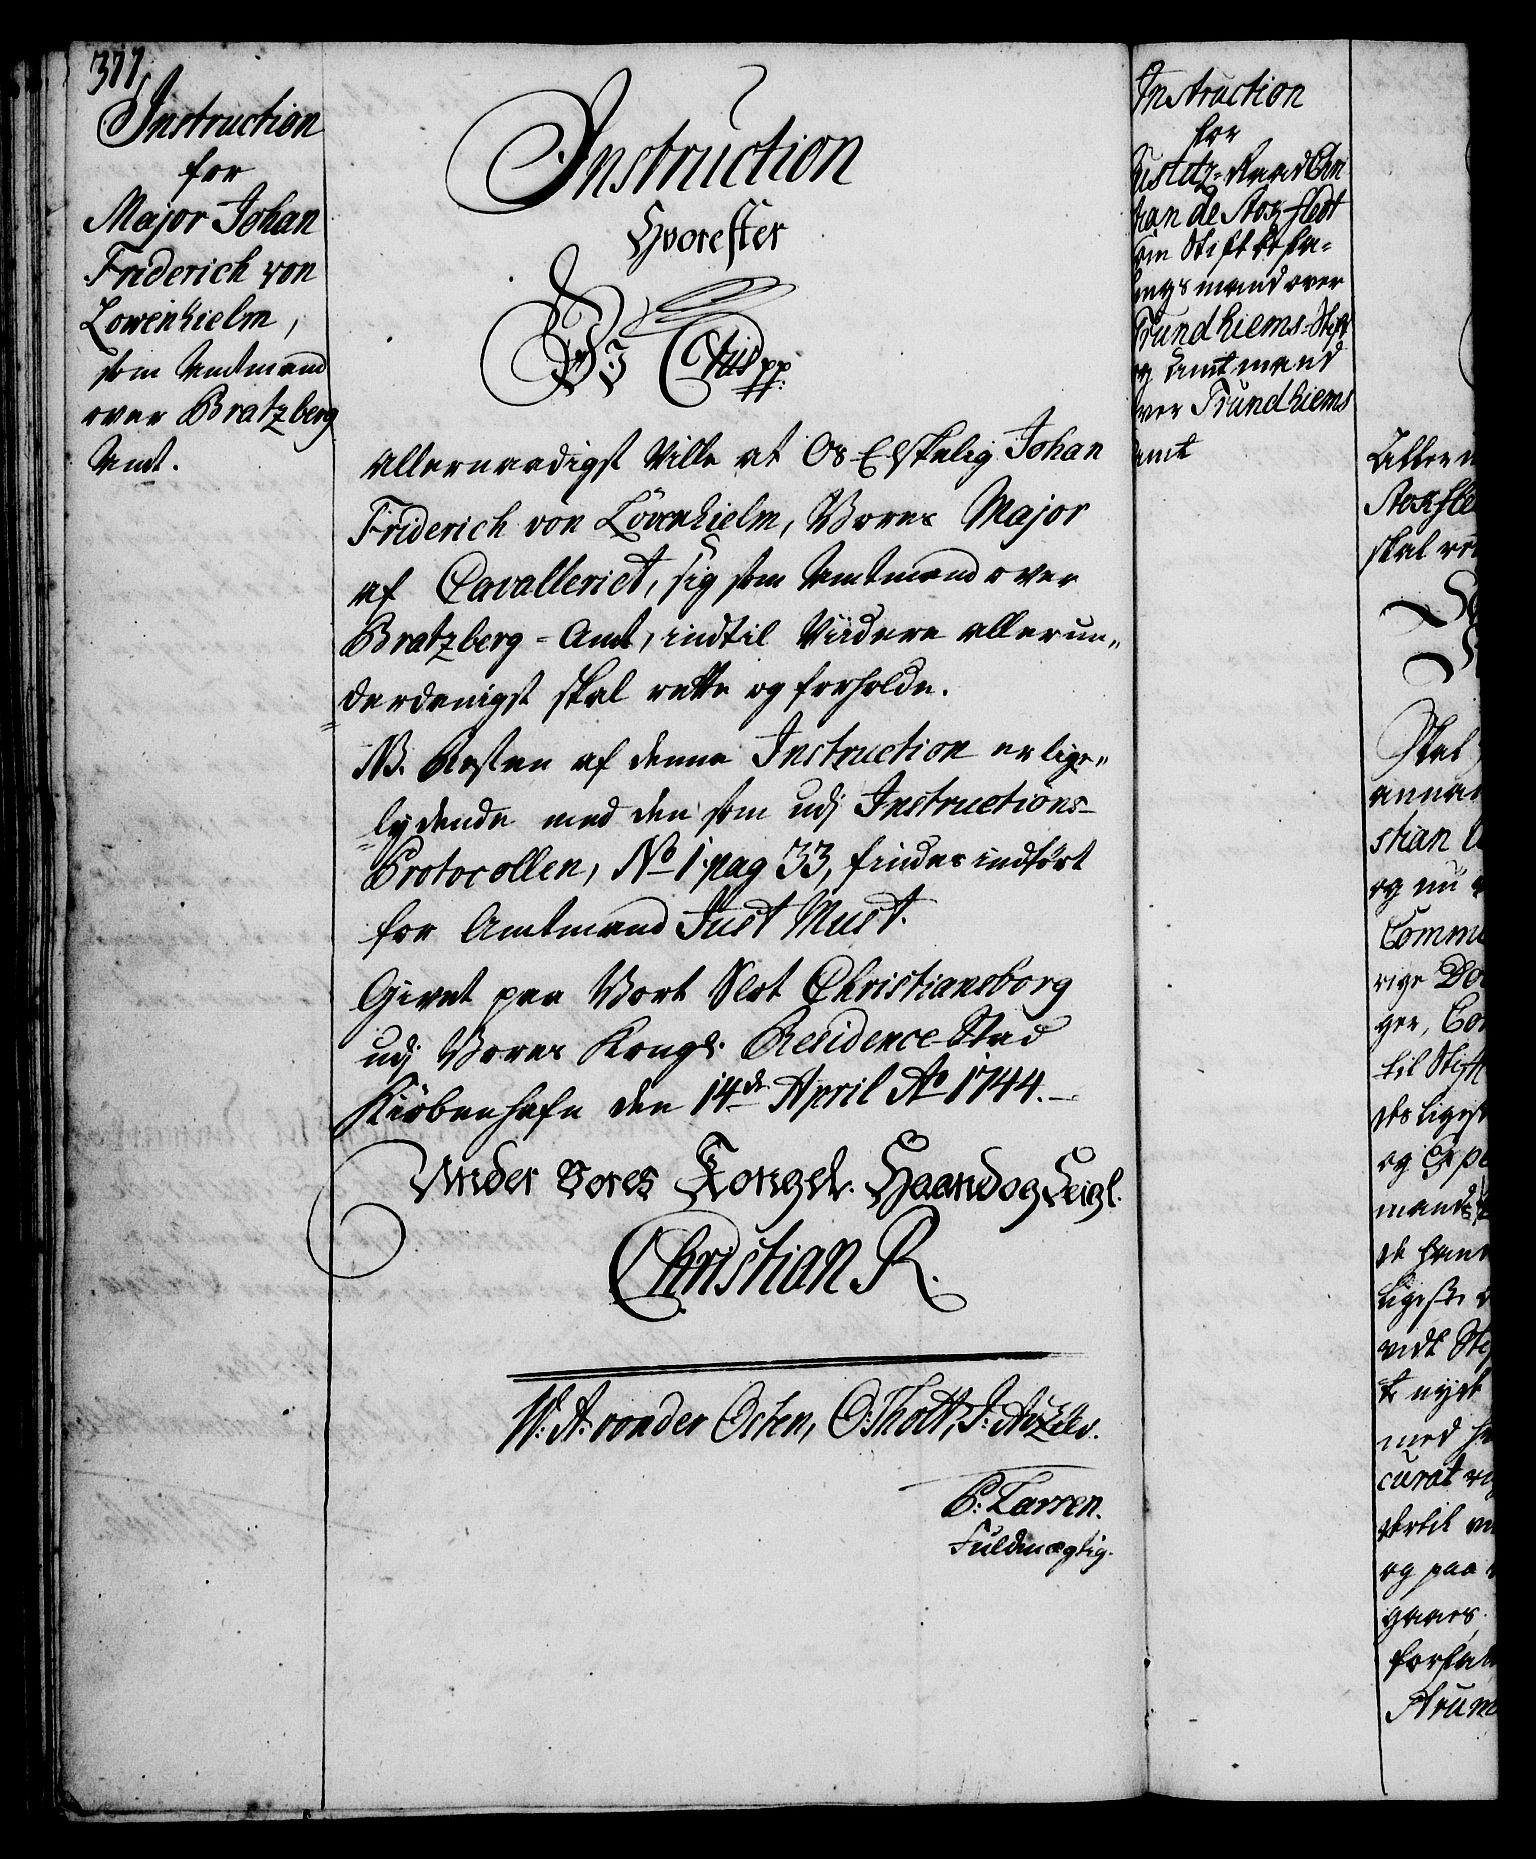 377.
Instruction
for
Major Johan
Friderich von
Lowenhielm,
som Amtmand
over Bratzberg
Amt.
Instruction
Hvorefter
Vi Ctus pp:
allernaadigst Ville at Os Elskelig Johan
Friderich von Lövenhielm, Vores Major
af Cavalleriet, sig som Amtmand over
Bratzberg-Amt, indtil Viidere allerun„
derdanigst skal rette og forholde.
NB. Resten af denne Instruction er lige„
lydende med den som udj Instructions-
Protocollen, No 1. pag 33, findes indført
for Amtmand Just Must.
Givet paa Vort Slot Christiansborg
udj Vores Kongl. Residence-Stad
Kiöbenhafn den 14de April Ao 1744.
Under Vores Kongel. Haand og Seigl.
Christian R.
W. A. von der Osten, O: Thott, J:
P: Larsen.
Fuldmægtig.
Instruction
for
ustitz-Raad Chri
tian de Stoxfledt
som Stiftbefa-
lings mand over
Trundhiems-Stift
og Amtmand
over Trundhiems
Amt
Stoxfle
skal
Skal
annam
stian
og nu
Commu
rige
ger,
til Stift
og
mands
vidt
med
curat
og paa
forfat